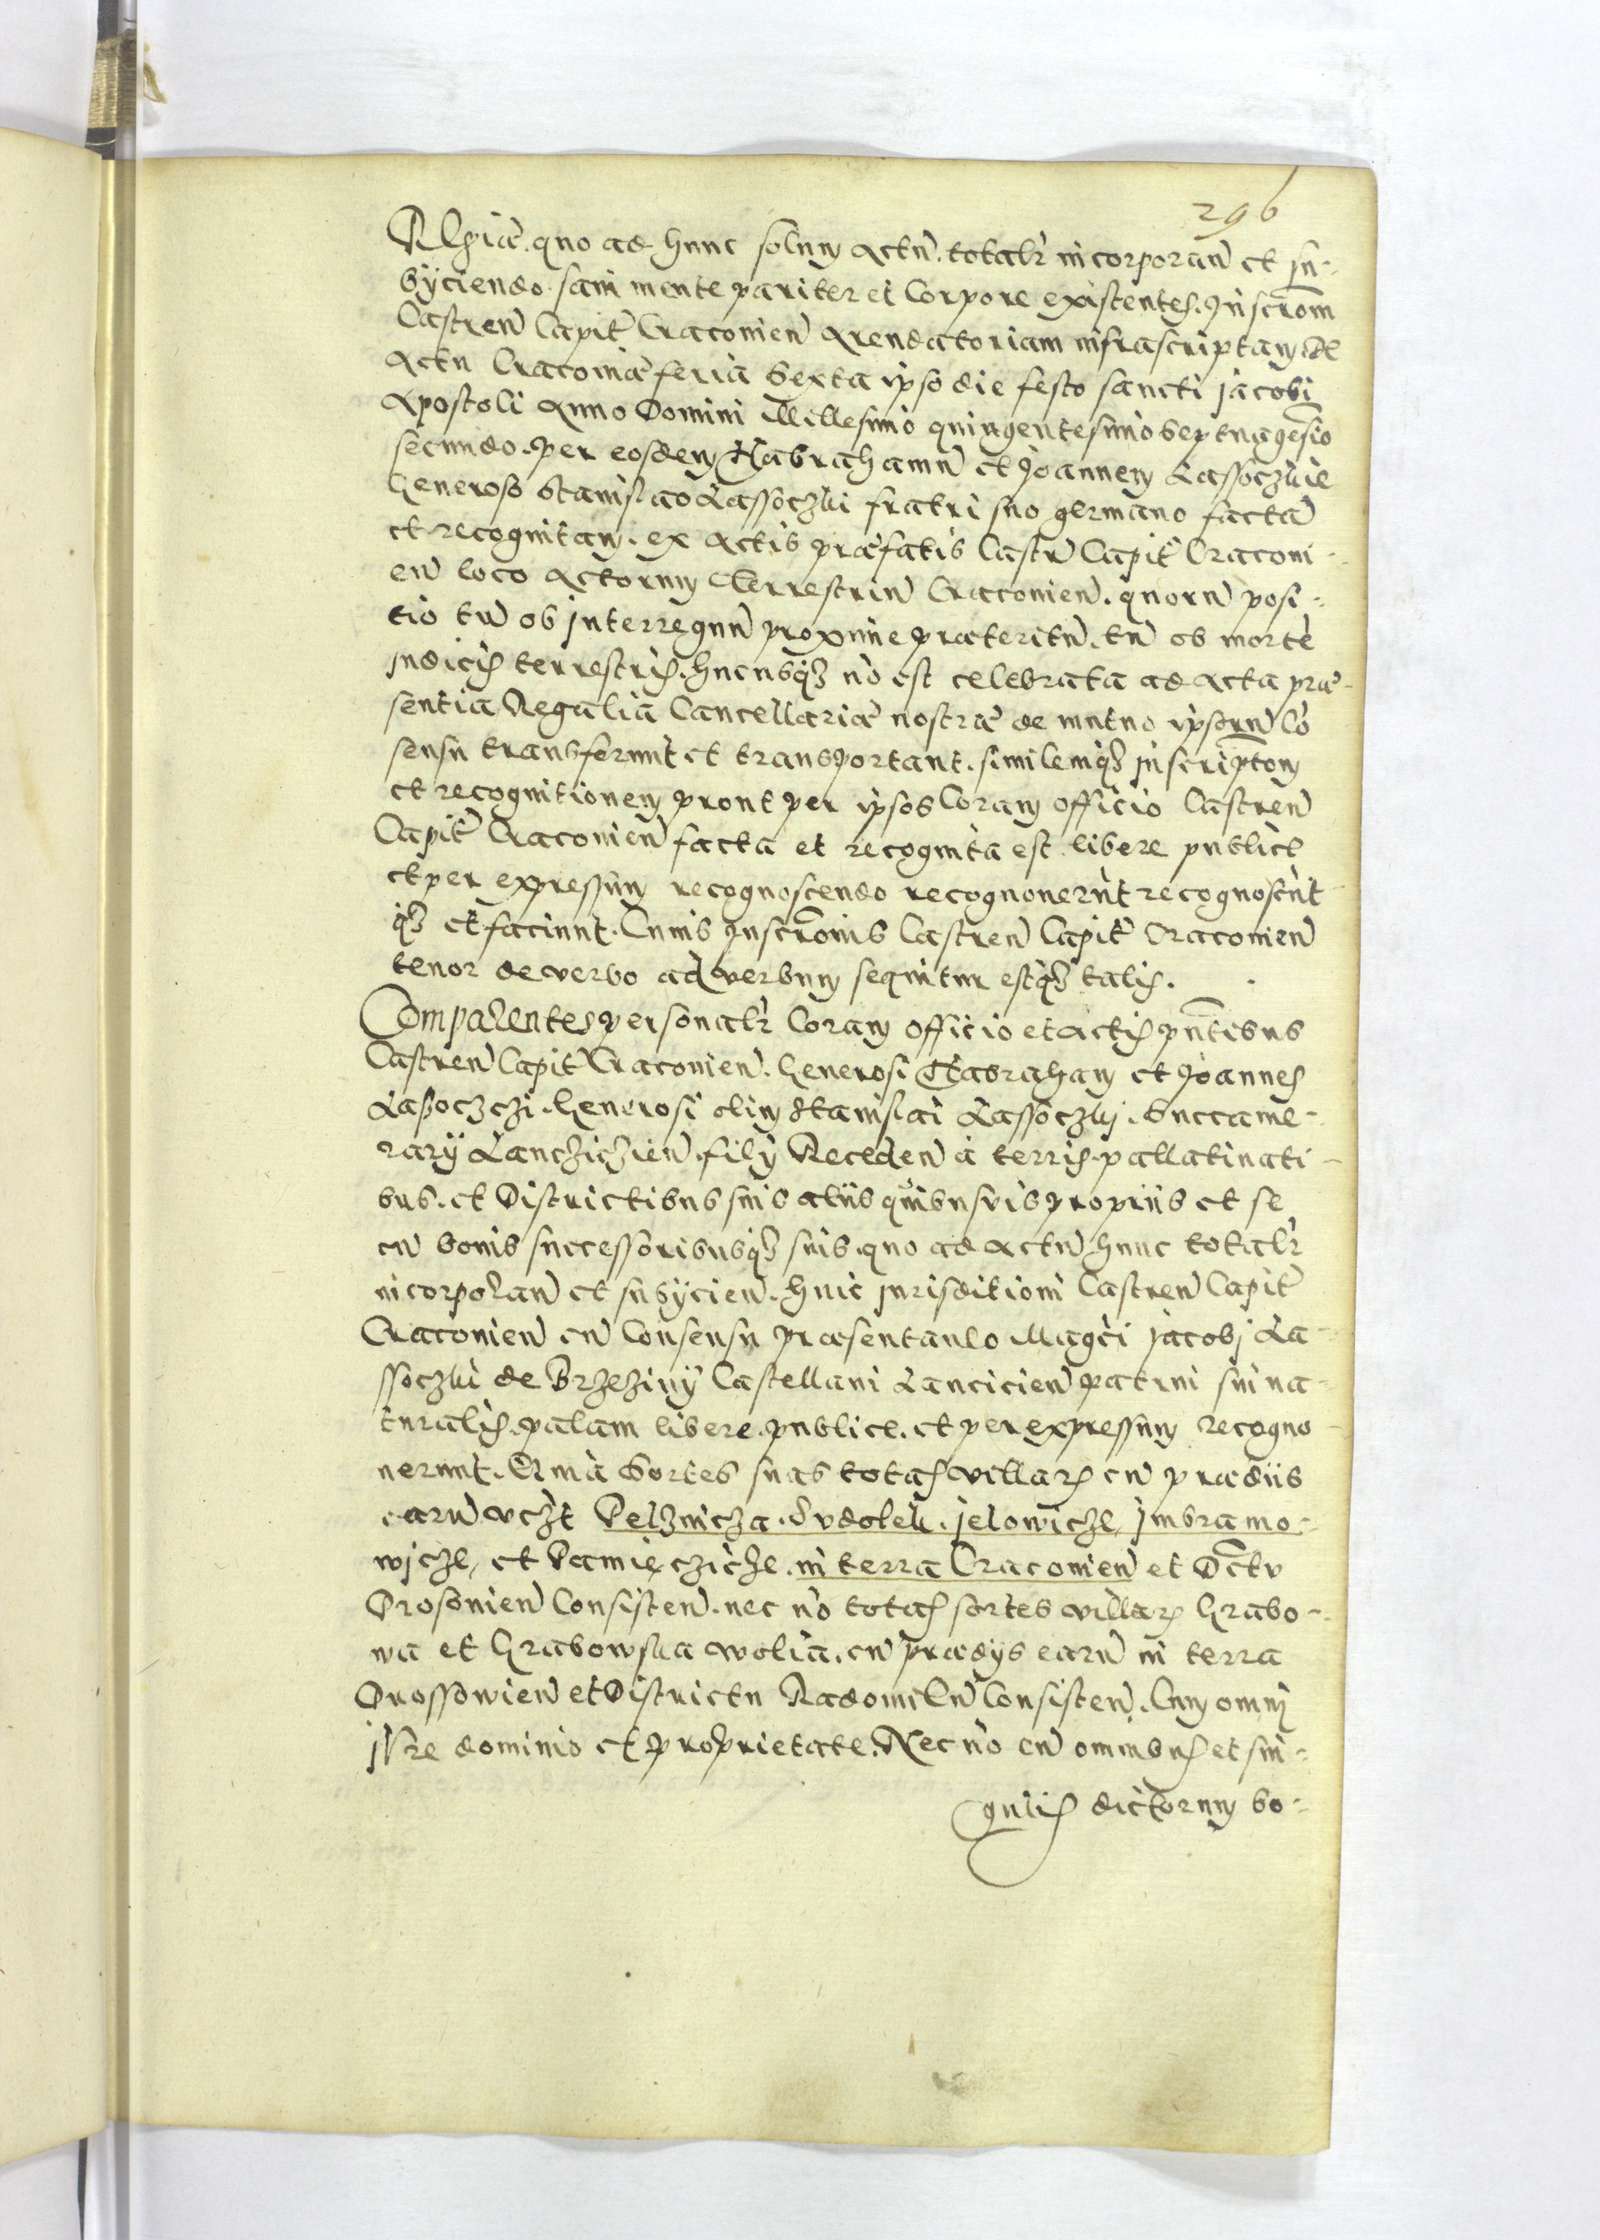 296
Regiã. quo ad hunc solum Actũ. totalr̃ incorporan̄ et su-
byciendo. sani mente pariter et Corpore existentes. Inscr̃om̄
Castren̄ Capit̃ Cracouien̄ Arendatoriam infrascriptam de
Actu Cracouiæ feria Sexta ipso die festo sancti Jacobi
Apostoli Anno Domini Millesimo quingentesimo Septuagesĩo
secundo. per eosdem Habrahamũ et Joannem Lassoczkie
Generoso Stanislao Lassoczki fratri suo germano factã
et recognitam. ex Actis præfatis Castr̃ Capit̃ Cracoui-
en̄ loco Actorum Terrestriũ Cracouien̄. quorũ posi-
tio tũ ob Interregnũ proxime præteritũ. tũ ob mortẽ
Judicis terrestris. hucusq3 nõ est celebrata ad Acta præ-
sentia Regalia Cancellariæ nostræ de mutuo ipsorũ Cõ
sensu transferunt et transportant. similemq3 inscriptom̄
et recognitionem prout per ipsos Coram officio Castren̄
Capit̃ Cracouien̄ facta et recognita est libere publice
et per expressum recognoscendo recognouerũt recognoscũt
q3 et faciunt. Cuius Inscr̃onis Castren̄ Capit̃ Cracouien̄
tenor de verbo ad verbum sequitur estq3 talis.
Comparentes personalr̃ Coram officio et actis pñtibus
Castren̄ Capit̃ Cracouien̄. Generosi Habraham et Joannes
Lasoczczi. Generosi olim Stanislai Lassoczkj. Succame-
rarÿ Lancziczien̄. filÿ Receden̄ à terris. pallatinati-
bus. et Districtibus suis alÿs quibusuis proprÿs et se
cũ bonis successoribusq3 suis. quo ad Actũ hunc totalr̃
incorporan̄ et subÿcien̄. huic Jurisditioni Castren̄ Capit̃
Cracouien̄ cũ Consensu præsentaneo Magc̃i Jacobj La-
ssoczki de Brzezinÿ Castellani Lancicien̄ patrui sui na-
turalis. palam libere. publice. et per expressum recogno-
uerunt. Quia Sortes suas totas villar3 cũ prædÿs
earũ vc3t Pelznicza. Vdolek. Jelowicze, Jmbramo-
wicze, et Pamięczicze. in terra Cracouien̄ et Dc̃tu
Prosouien̄ Consisten̄. nec nõ totas sortes villar3 Grabo-
wa et Grabowska wolia. cũ prædÿs earũ in terra
et Districtu Consisten̄. Cum omni
jVre dominio et proprietate. Nec nõ cũ omnibus et sin-
gulis dictorum bo-